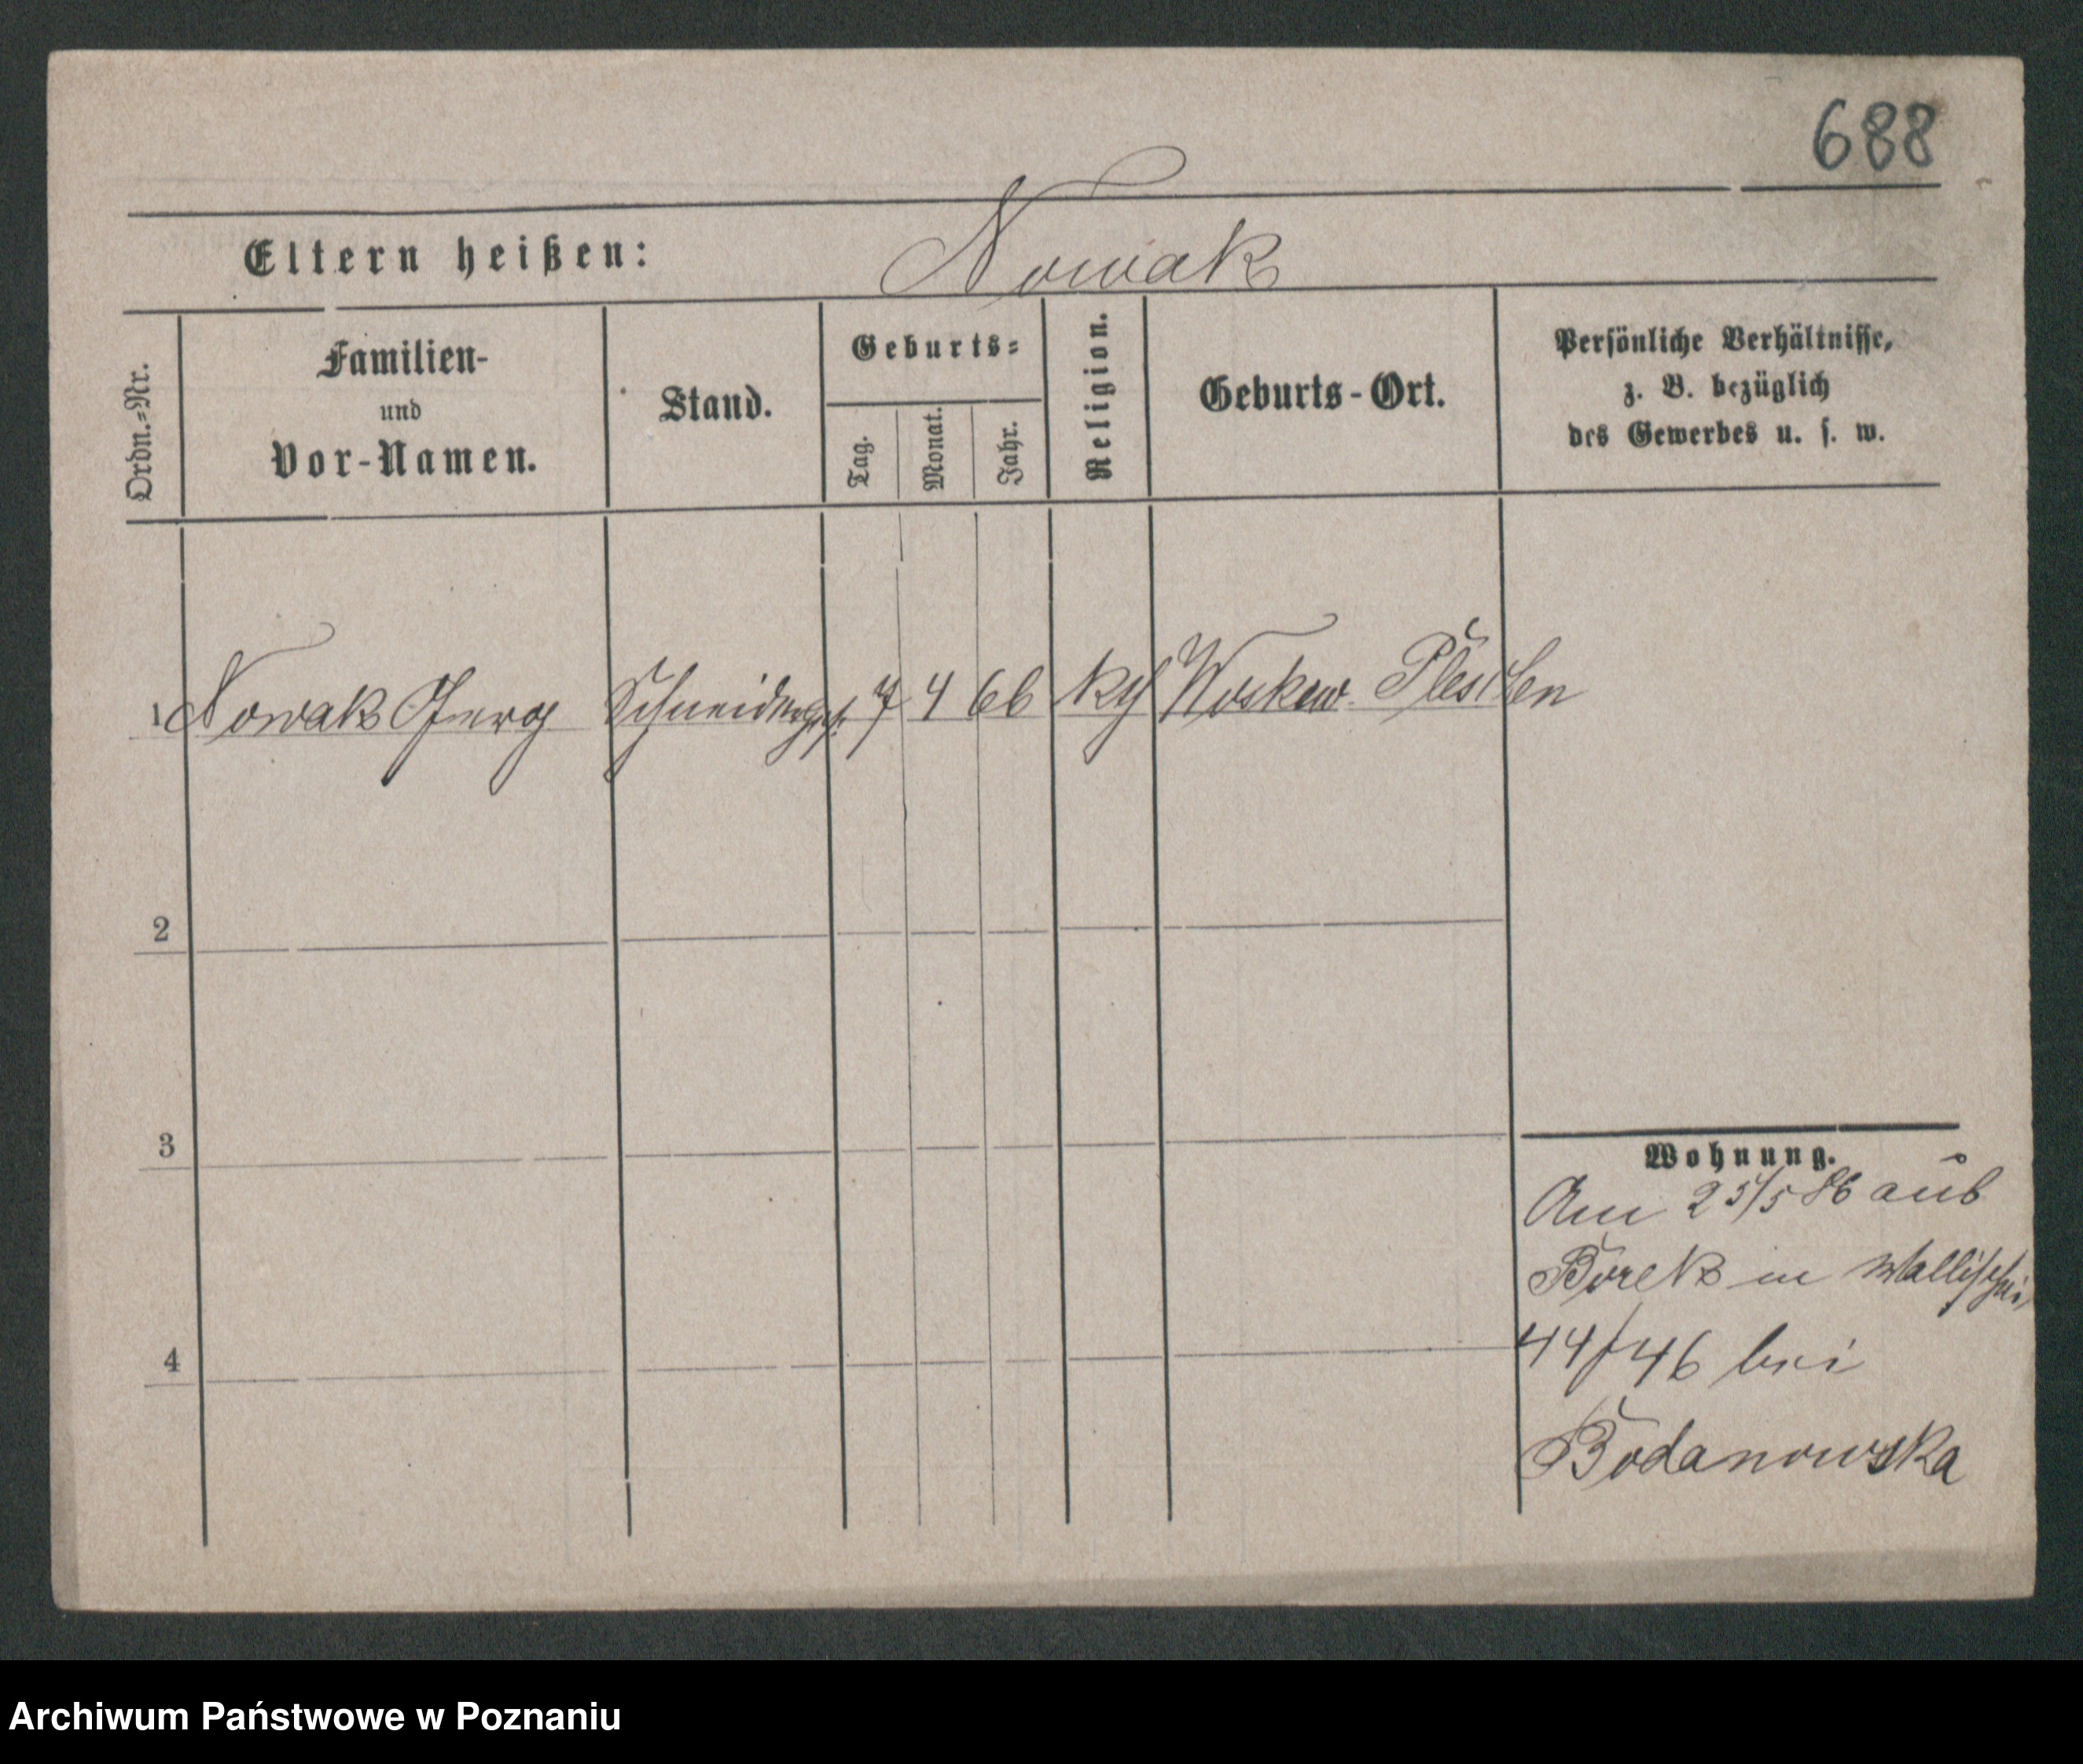 688
Eltern heißen: Nowak
Ordn.=Nr.
Familien-
und
Vor-Namen.
Stand.
Geburts=
Tag.
Monat.
Jahr.
Religion.
Geburts-Ort.
Persönliche Verhältnisse,
z. B. bezüglich
des Gewerbes u. s. w.
1 Nowak Schneiderges. 7 4 66 kth Pleschen
2
3
4
Wohnung.
Am 25/5 86 aus
Borek in Wallischei
44/46 bei
Bodanowska
Archiwum Państwowe w Poznaniu